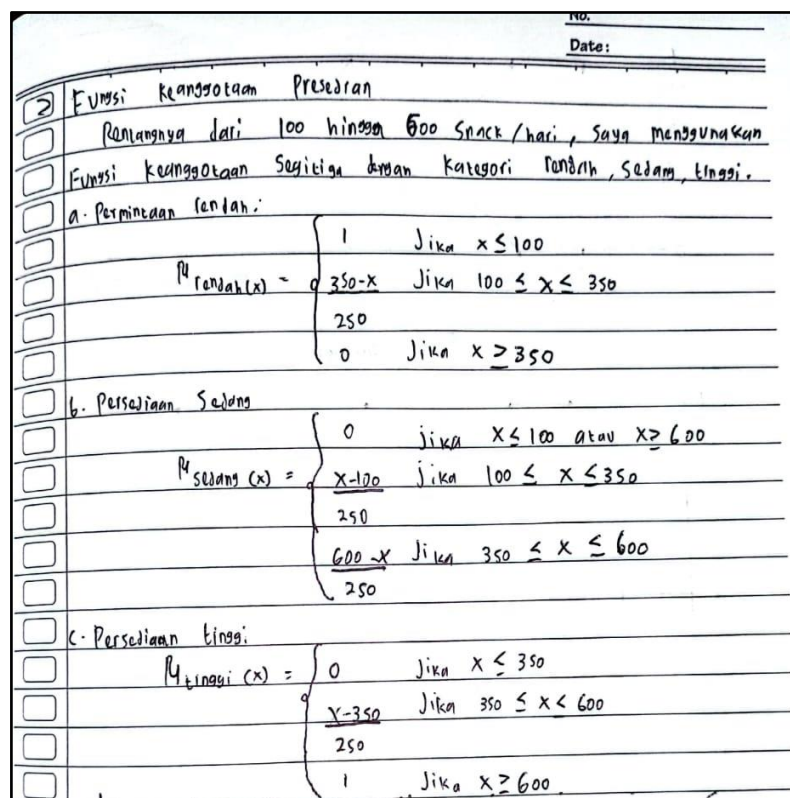 No.
Date:
2 Fungsi keanggotaan Presedian
Rentangnya dari 100 hingga 600 Snack/hari, Saya menggunakan
Fungsi keanggotaan Segitiga dengan kategori rendah, Sedang, tinggi.
a. Permintaan rendah:
1 Jika x ≤ 100
μ rendah(x) = 350-x Jika 100 ≤ x ≤ 350
250
0 Jika x ≥ 350
b. Persediaan Sedang
0 jika x ≤ 100 atau x ≥ 600
μ sedang (x) = x-100 jika 100 ≤ x ≤ 350
250
600-x Jika 350 ≤ x ≤ 600
250
c. Persediaan tinggi
μ tinggi (x) = 0 Jika x ≤ 350
x-350 Jika 350 ≤ x < 600
250
1 Jika x ≥ 600